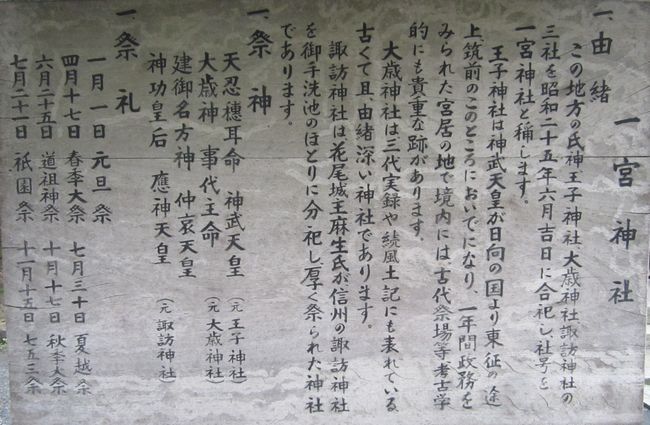 一宮神社
一、由緒
この地方の氏神王子神社、大歳神社諏訪神社の
三社を昭和二十五年六月吉日に合祀し、社号を
一宮神社と稱します。
王子神社は神武天皇が日向の国より東征の途
上、筑前のこのところにおいでになり、一年間政務を
みられた宮居の地で境内には、古代祭場等考古学
的にも貴重な跡があります。
大歳神社は三代実録や続風土記にも表れている
古くて且、由緒深い神社であります。
諏訪神社は花尾城主麻生氏が信州の諏訪神社
を御手洗池のほとりに分祀し厚く祭られた神社
であります。
一、祭神
天忍穗耳命 神武天皇 (元王子神社)
大歳神 事代主命 (元大歳神社)
建御名方神 仲哀天皇
神功皇后 應神天皇 (元諏訪神社)
一、祭礼
一月一日 元旦祭 七月三十日 夏越祭
四月十七日 春季大祭 十月十七日 秋季大祭
六月二十五日 道祖神祭 十一月十五日 七五三祭
七月二十一日 祇園祭